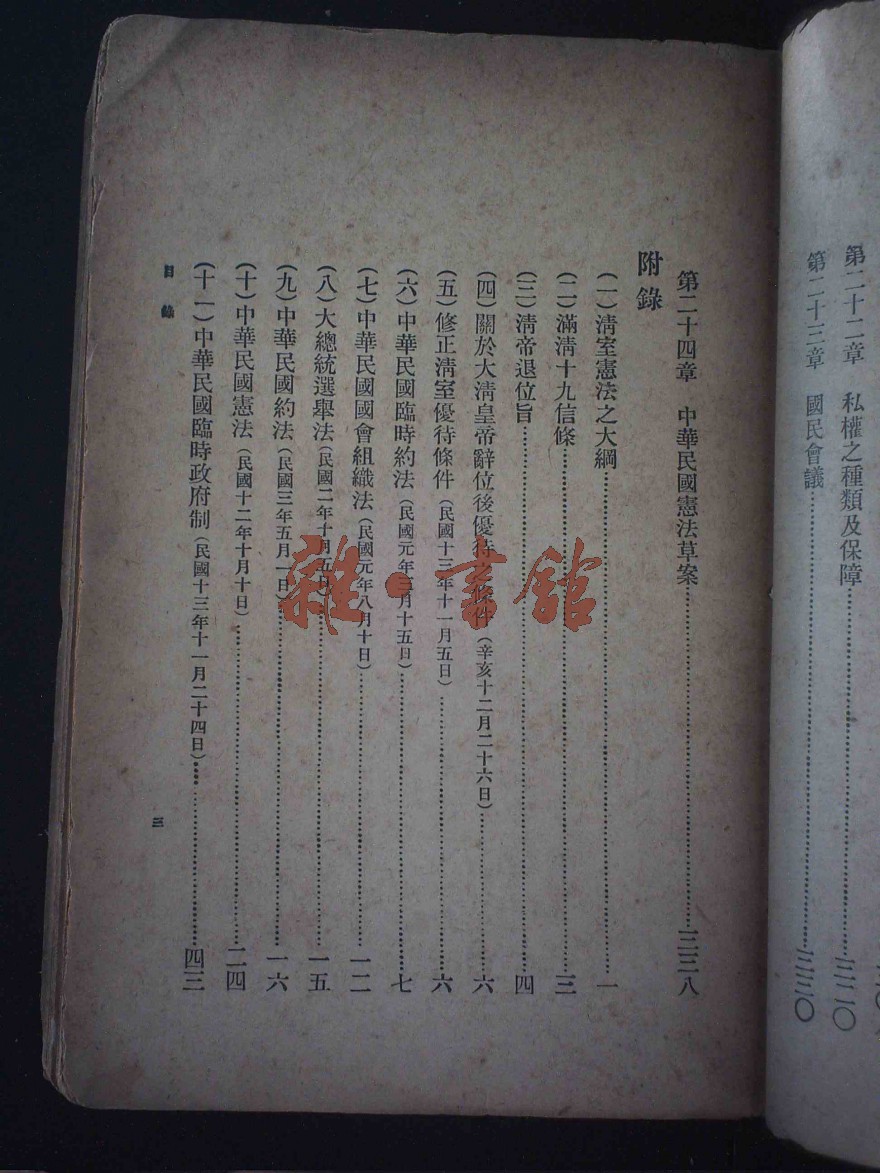 第二十二章　私權之種類及保障……三二〇
第二十三章　國民會議……三三〇
第二十四章　中華民國憲法草案……三三八
附錄
(一)淸室憲法之大綱……一
(二)滿淸十九信條……三
(三)淸帝退位旨……四
(四)關於大淸皇帝辭位後優待之條件(辛亥十二月二十六日)……六
(五)修正淸室優待條件(民國十三年十一月五日)……六
(六)中華民國臨時約法(民國元年三月十五日)……七
(七)中華民國國會組織法(民國元年八月十日)……一二
(八)大總統選舉法(民國二年十月五日)……一五
(九)中華民國約法(民國三年五月一日)……一六
(十)中華民國憲法(民國十二年十月十日)……二四
(十一)中華民國臨時政府制(民國十三年十一月二十四日)……四三
目錄
三
雜·書館